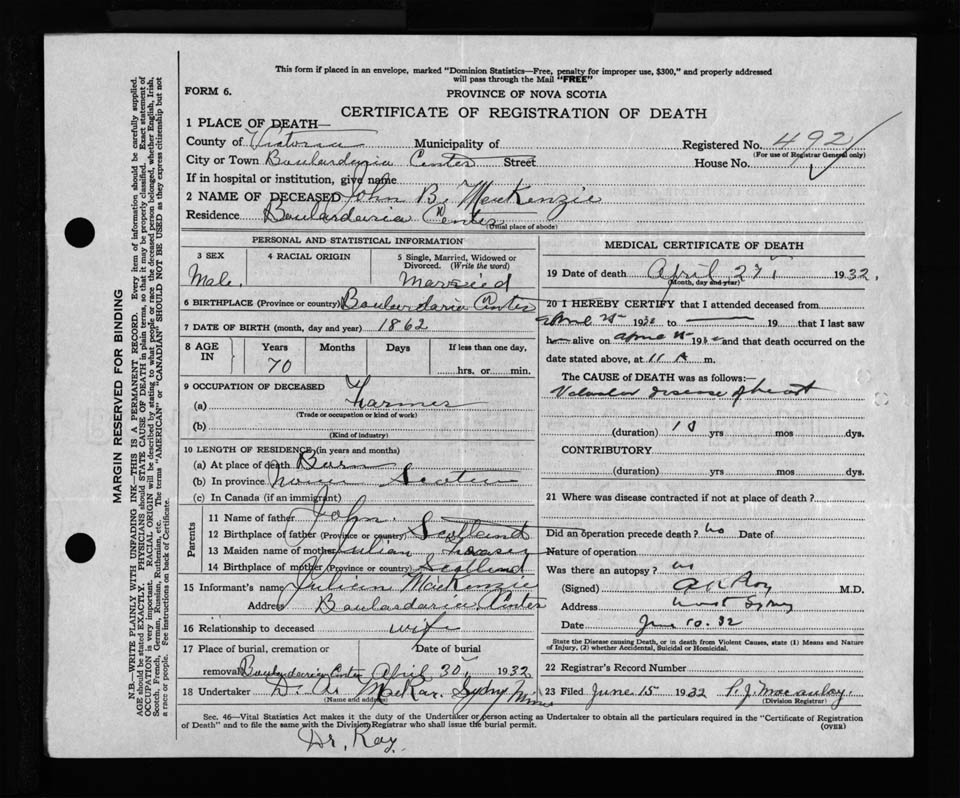 This form if placed in an envelope, marked "Dominion Statistics—Free, penalty for improper use, $300," and properly addressed
will pass through the Mail "FREE"
FORM 6.
PROVINCE OF NOVA SCOTIA
CERTIFICATE OF REGISTRATION OF DEATH
1 PLACE OF DEATH—
County of Victoria Municipality of Registered No. 492
(For use of Registrar General only)
City or Town Center Street House No.
If in hospital or institution, give name
2 NAME OF DECEASED John B. MacKenzie
Residence Boulardarie Center
(Usual place of abode)
PERSONAL AND STATISTICAL INFORMATION
3 SEX
Male.
4 RACIAL ORIGIN
5 Single, Married, Widowed or
Divorced. (Write the word)
Married
6 BIRTHPLACE (Province or country) Boulardarie Center
7 DATE OF BIRTH (month, day and year) 1862
8 AGE IN
Years Months Days If less than one day,
70 hrs. or min.
9 OCCUPATION OF DECEASED
(a) Farmer
(Trade or occupation or kind of work)
(b)
(Kind of industry)
10 LENGTH OF RESIDENCE (in years and months)
(a) At place of death Born
(b) In province Nova Scotia
(c) In Canada (if an immigrant)
Parents
11 Name of father John.
12 Birthplace of father (Province or country) Scotland
13 Maiden name of mother
14 Birthplace of mother (Province or country) Scotland
15 Informant's name MacKenzie
Address Boulardarie Center
16 Relationship to deceased wife
17 Place of burial, cremation or Date of burial
removal Boulardarie Center April 30, 1932
18 Undertaker Sydney Mines
(Name and address)
MEDICAL CERTIFICATE OF DEATH
19 Date of death April 27, 1932.
(Month, day and year)
20 I HEREBY CERTIFY that I attended deceased from
April 1932 to 19 that I last saw
h alive on April 193 and that death occurred on the
date stated above, at 11 A m.
The CAUSE of DEATH was as follows:—
Valvular disease of heart
(duration) 10 yrs mos dys.
CONTRIBUTORY
(duration) yrs mos dys.
21 Where was disease contracted if not at place of death?
Did an operation precede death? no Date of
Nature of operation
Was there an autopsy? no
(Signed) M.D.
Address North Sydney
Date June 10. 32
State the Disease causing Death, or in death from Violent Causes, state (1) Means and Nature
of Injury, (2) whether Accidental, Suicidal or Homicidal.
22 Registrar's Record Number
23 Filed June 15 1932 P. J. Macaulay.
(Division Registrar)
Sec. 46—Vital Statistics Act makes it the duty of the Undertaker or person acting as Undertaker to obtain all the particulars required in the "Certificate of Registration
of Death" and to file the same with the Division Registrar who shall issue the burial permit.
(OVER)
Dr. Roy.
MARGIN RESERVED FOR BINDING
N.B.—WRITE PLAINLY WITH UNFADING INK—THIS IS A PERMANENT RECORD. Every item of information should be carefully supplied.
AGE should be stated EXACTLY. PHYSICIANS should STATE CAUSE OF DEATH in plain terms, so that it may be properly classified. Exact statement of
OCCUPATION is very important. RACIAL ORIGIN will be described by stating to what people or race the deceased person belonged, whether English, Irish,
Scotch, French, German, Russian, Ruthenian, etc. The terms "AMERICAN" or "CANADIAN" SHOULD NOT BE USED as they express citizenship but not
a race or people. See instructions on back of Certificate.